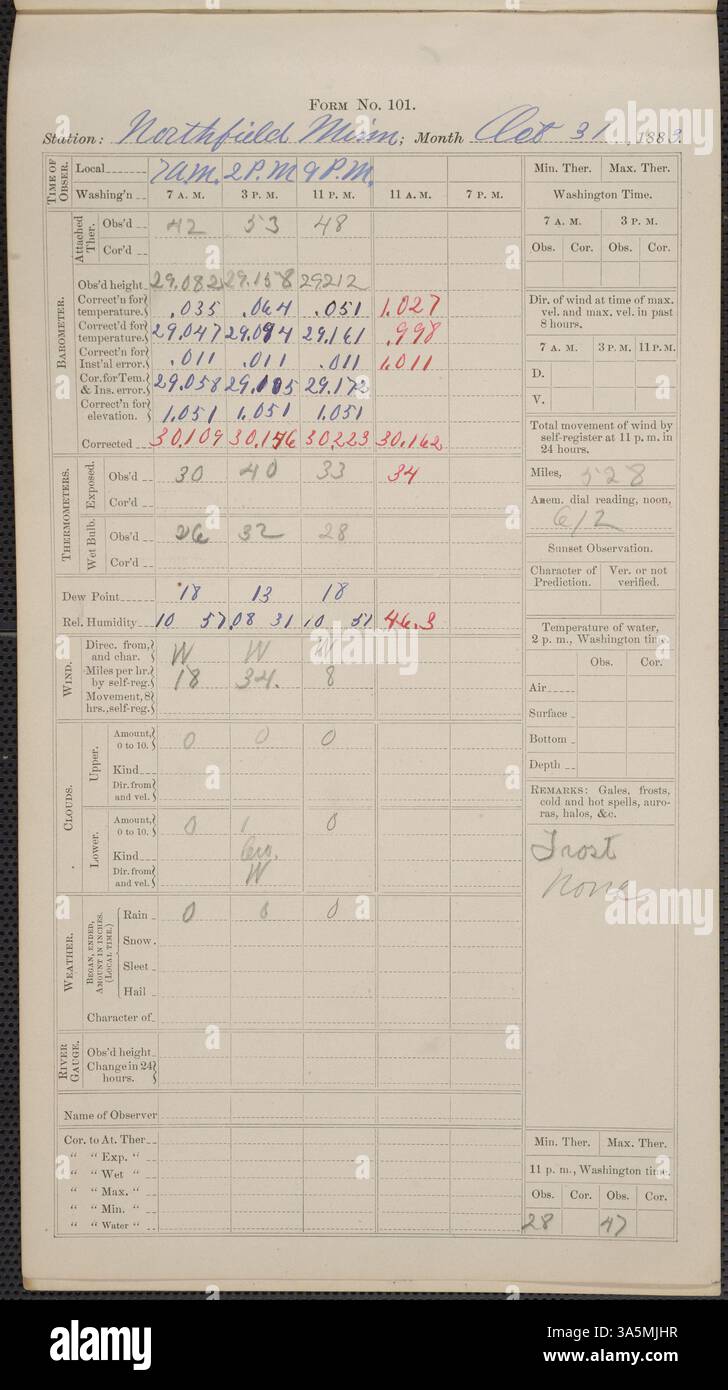 Form No. 101.
Station: Northfield Minn; Month Oct 31, 1883.
TIME OF OBSER.
Local 7 A.M. 2 P.M 9 P.M.
Washing'n 7 A. M. 3 P. M. 11 P. M. 11 A. M. 7 P. M.
BAROMETER.
Attached Ther.
Obs'd 42 53 48
Cor'd
Obs'd height 29.082 29.158 29212
Correct'n for temperature. .035 .064 .051 1.027
Correct'd for temperature. 29.047 29.094 29.161 .998
Correct'n for Inst'al error. .011 .011 .011 1.011
Cor. for Tem. & Ins. error. 29.058 29.105 29.172
Correct'n for elevation. 1.051 1.051 1.051
Corrected 30.109 30.156 30.223 30.162
THERMOMETERS.
Exposed.
Obs'd 30 40 33 34
Cor'd
Wet Bulb.
Obs'd 26 32 28
Cor'd
Dew Point 18 13 18
Rel. Humidity 10 57 .08 31 10 51 46.3
WIND.
Direc. from, and char. W W W
Miles per hr. by self-reg. 18 34. 8
Movement, 8 hrs., self-reg.
CLOUDS.
Upper.
Amount, 0 to 10. 0 0 0
Kind
Dir. from and vel.
Lower.
Amount, 0 to 10. 0 1 0
Kind
Dir. from and vel. W
WEATHER.
BEGAN, ENDED, AMOUNT IN INCHES. (LOCAL TIME.)
Rain 0 0 0
Snow.
Sleet
Hail
Character of
RIVER GAUGE.
Obs'd height
Change in 24 hours.
Name of Observer
Cor. to At. Ther
“ “ Exp. “
“ “ Wet “
“ “ Max. “
“ “ Min. “
“ “ Water “
Min. Ther. Max. Ther.
Washington Time.
7 A. M. 3 P. M.
Obs. Cor. Obs. Cor.
Dir. of wind at time of max. vel. and max. vel. in past 8 hours.
7 A. M. 3 P. M. 11 P. M.
D.
V.
Total movement of wind by self-register at 11 p. m. in 24 hours.
Miles, 528
Anem. dial reading, noon,
612
Sunset Observation.
Character of Prediction. Ver. or not verified.
Temperature of water, 2 p. m., Washington time.
Obs. Cor.
Air
Surface
Bottom
Depth
REMARKS: Gales, frosts, cold and hot spells, auroras, halos, &c.
Frost
None
Min. Ther. Max. Ther.
11 p. m., Washington time.
Obs. Cor. Obs. Cor.
28 47
alamy
alamy
Image ID: 3A5MJHR
www.alamy.com